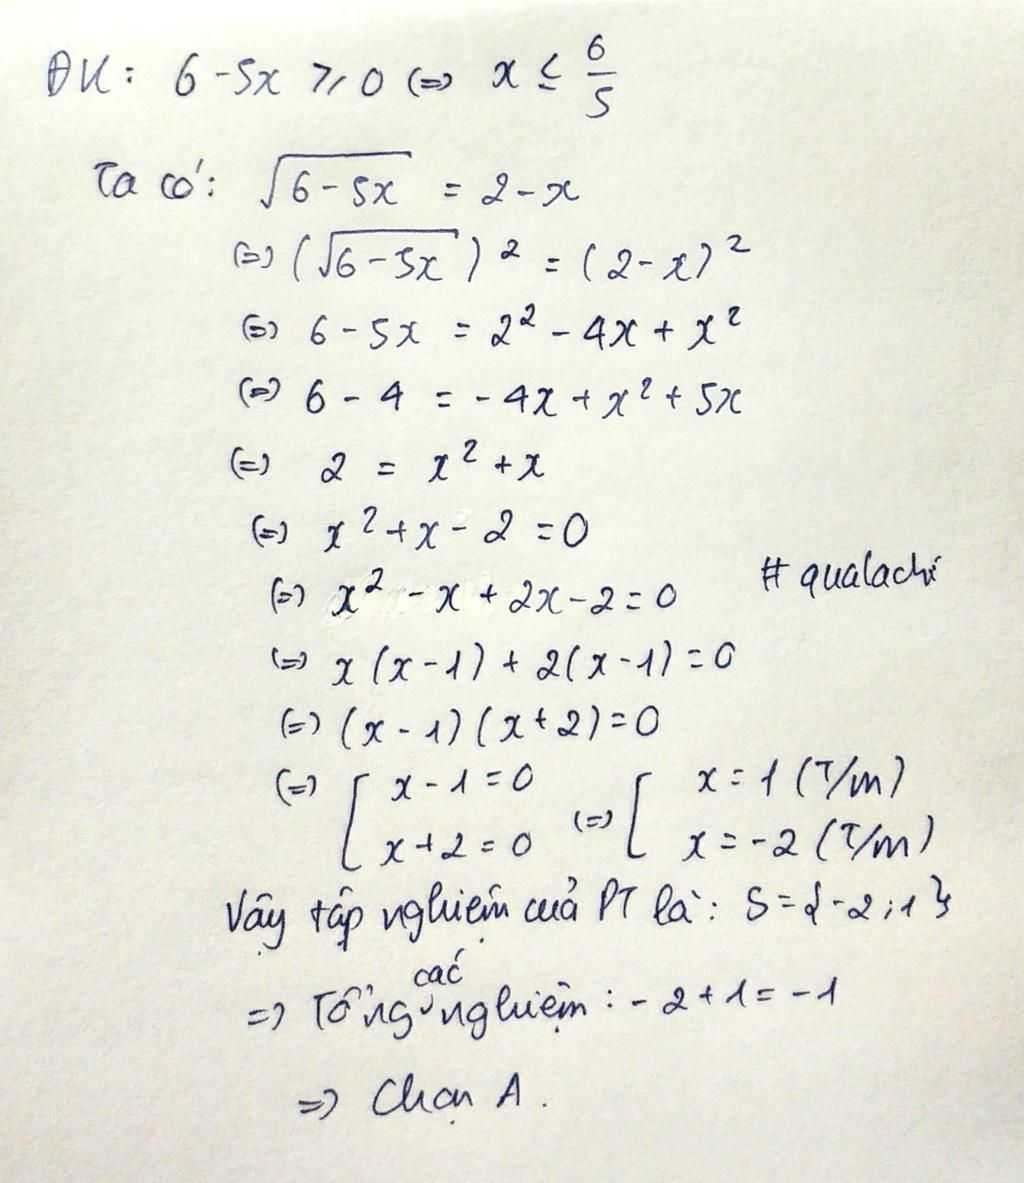 ĐK: 6 - 5x ≥ 0 (=) x ≤ 6/5
Ta có: √(6 - 5x) = 2 - x
(=) (√(6 - 5x))² = (2 - x)²
(=) 6 - 5x = 2² - 4x + x²
(=) 6 - 4 = - 4x + x² + 5x
(=) 2 = x² + x
(=) x² + x - 2 = 0
(=) x² - x + 2x - 2 = 0
# qualachi
(=) x (x - 1) + 2(x - 1) = 0
(=) (x - 1) (x + 2) = 0
(=) [ x - 1 = 0 (=) [ x = 1 (T/m)
x + 2 = 0 x = -2 (T/m)
Vậy tập nghiệm cuả PT là: S = {-2; 1}
=> Tổng các nghiệm : - 2 + 1 = - 1
=> Chọn A.